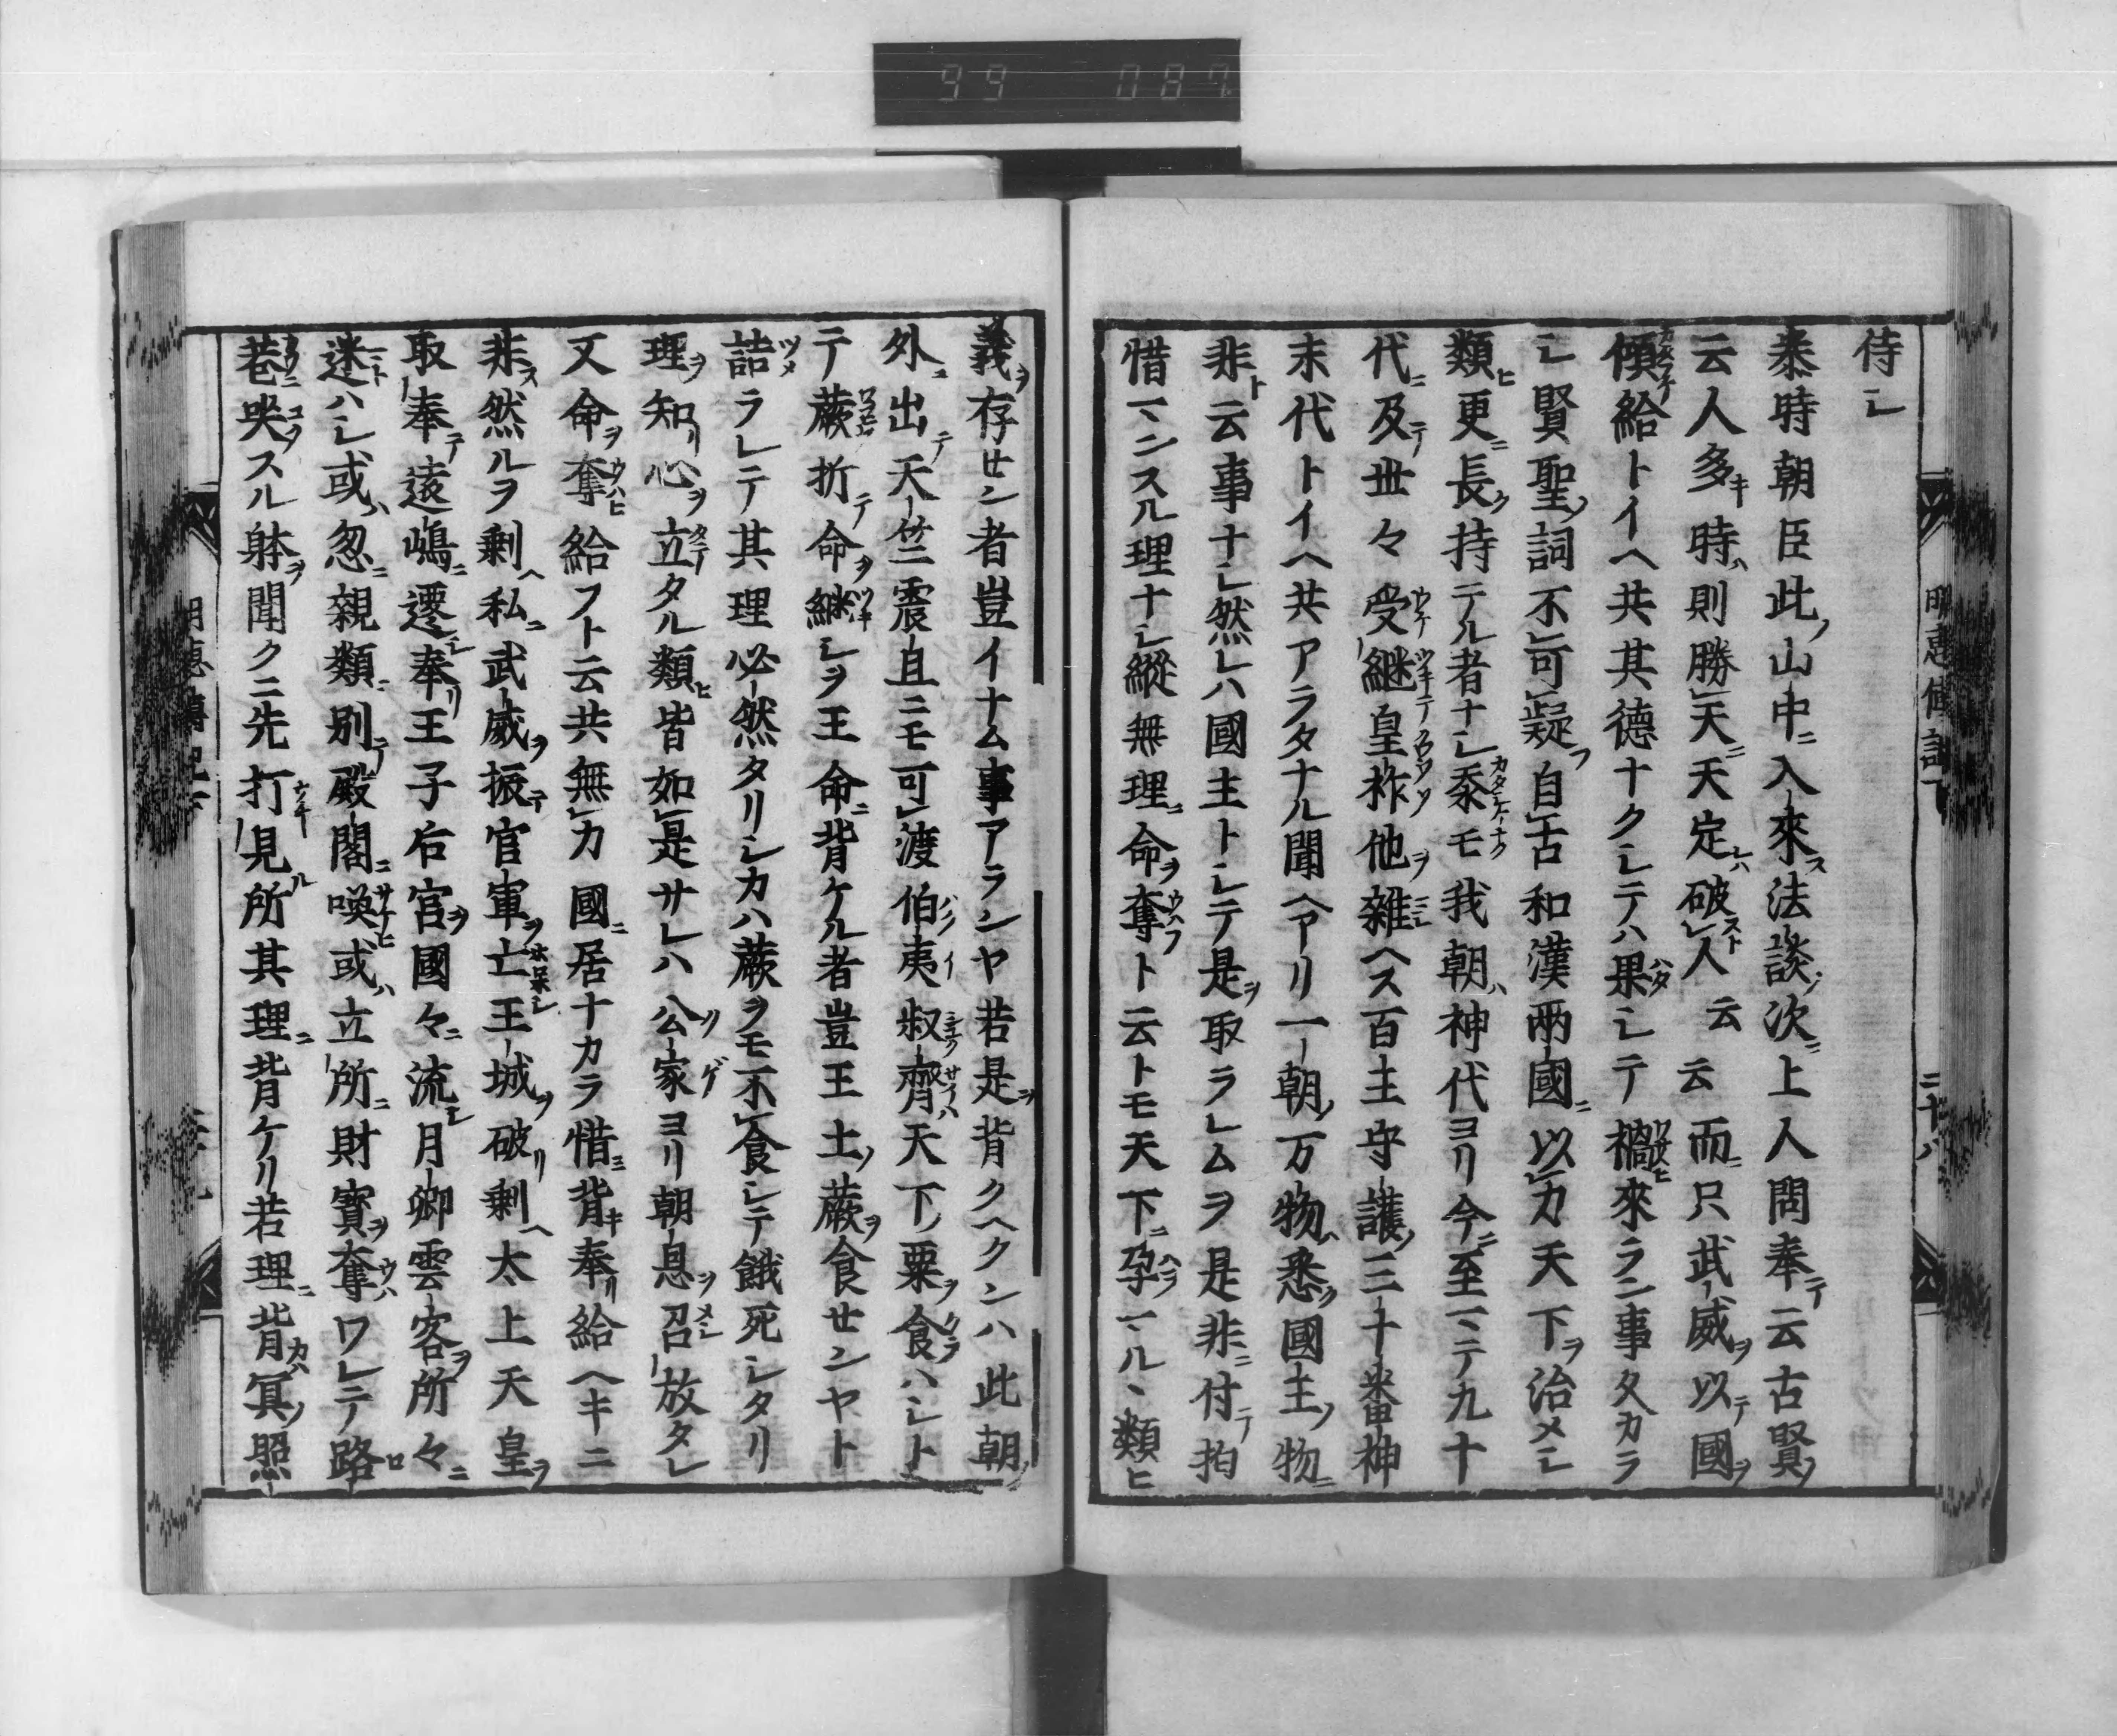 侍シ
泰時朝臣此ノ山中ニ入來ス法談ノ次ニ上人問奉テ云古賢ノ
云人多キ時ハ則勝天ニ天定レハ破スト人云云而ニ只武威ヲ以テ國ヲ
傾給トイヘ共其德ナクシテハ果シテ禍來ラン事久カラ
シ賢聖ノ詞不可疑フ自古和漢兩國ニ以力天下ヲ治メシ
類ヒ更ニ長ク持テル者ナシ忝モ我朝ハ神代ヨリ今ニ至マテ九十
代ニ及テ世々受繼皇祚他ヲ雜ヘス百王守護ノ三十番神
末代トイヘ共アラタナル聞ヘアリ一朝ノ万物ハ悉ク國主ノ物ニ
非ト云事ナシ然レハ國主トシテ是ヲ取ラレムヲ是非ニ付テ拘
惜マンスル理ナシ縱無理ニ命ヲ奪フト云トモ天下ニ孕マルヽ類ヒ
義ヲ存セン者豈イナム事アランヤ若是ヲ背クヘクンハ此朝ノ
外ニ出テ天竺震旦ニモ可渡伯夷叔齊ハ天下ノ粟ヲ食ハシト
テ蕨折テ命ヲ繼シヲ王命ニ背ケル者豈王土ノ蕨ヲ食センヤト
詰ラレテ其理必然タリシカハ蕨ヲモ不食シテ餓死シタリ
理ヲ知リ心ヲ立タル類ヒ皆如是サレハ公家ヨリ朝息ヲ召放タレ
又命ヲ奪給フト云共無力國ニ居ナカラ惜ミ背キ奉リ給ヘキニ
非ス然ルヲ剩ヘ私ニ武威ヲ振テ官軍ヲ亡シ王城ヲ破リ剩ヘ太上天皇ヲ
取奉テ遠嶋ニ遷シ奉リ王子后宮ヲ國々ニ流シ月卿雲客ヲ所々ニ
迷ハシ或ハ忽ニ親類ニ別テ殿閣ニ喚ヒ或ハ立所ニ財寳ヲ奪ワレテ路
巷ニ哭スル躰ヲ聞クニ先打見ル所其理ニ背ケリ若理ニ背カハ冥ノ照
明恵傳記下
二十八